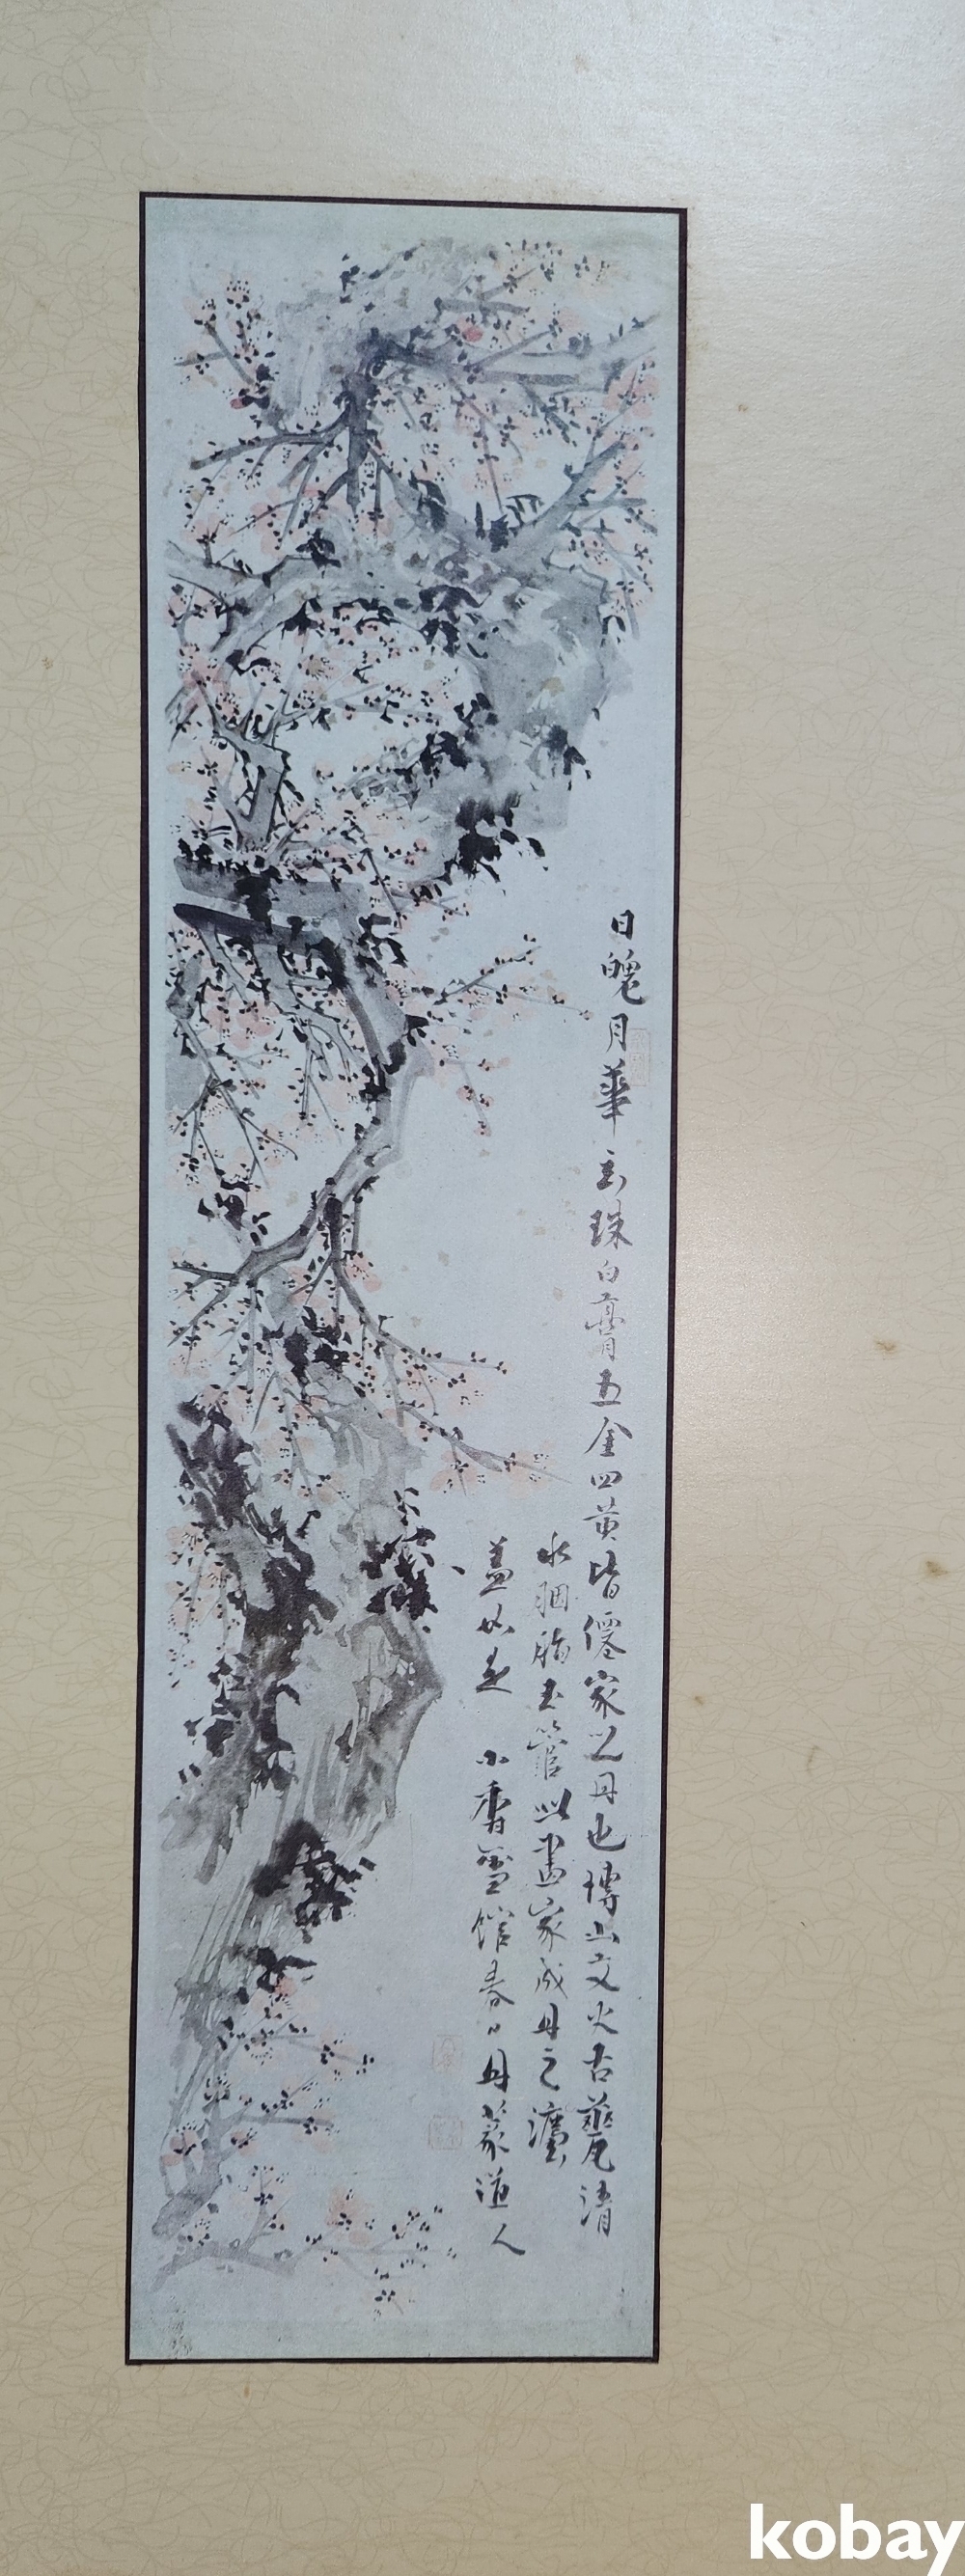 日魄月華玄珠白膏五金四黃皆僊家之丹也博山文火古甕清
水胭脂玉管此畫家成丹之濾
蓋如是 小香雪館春日丹篆道人
kobay